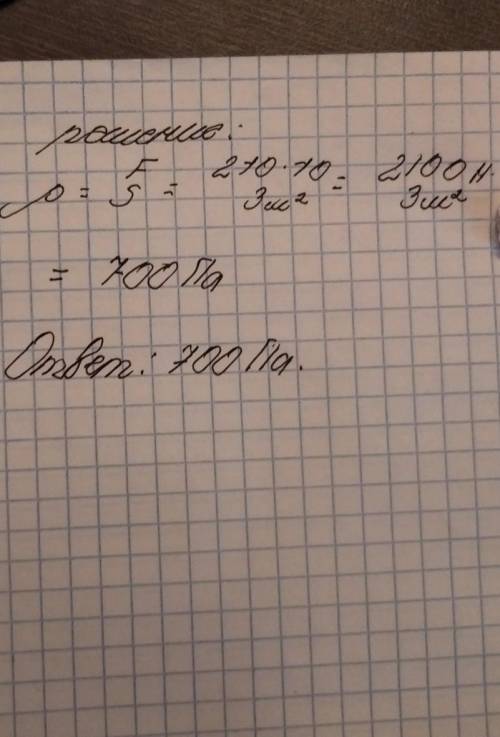 решение:
p = F/S = 210·10/3м² = 2100н/3м²
= 700 Па
Ответ: 700 Па.